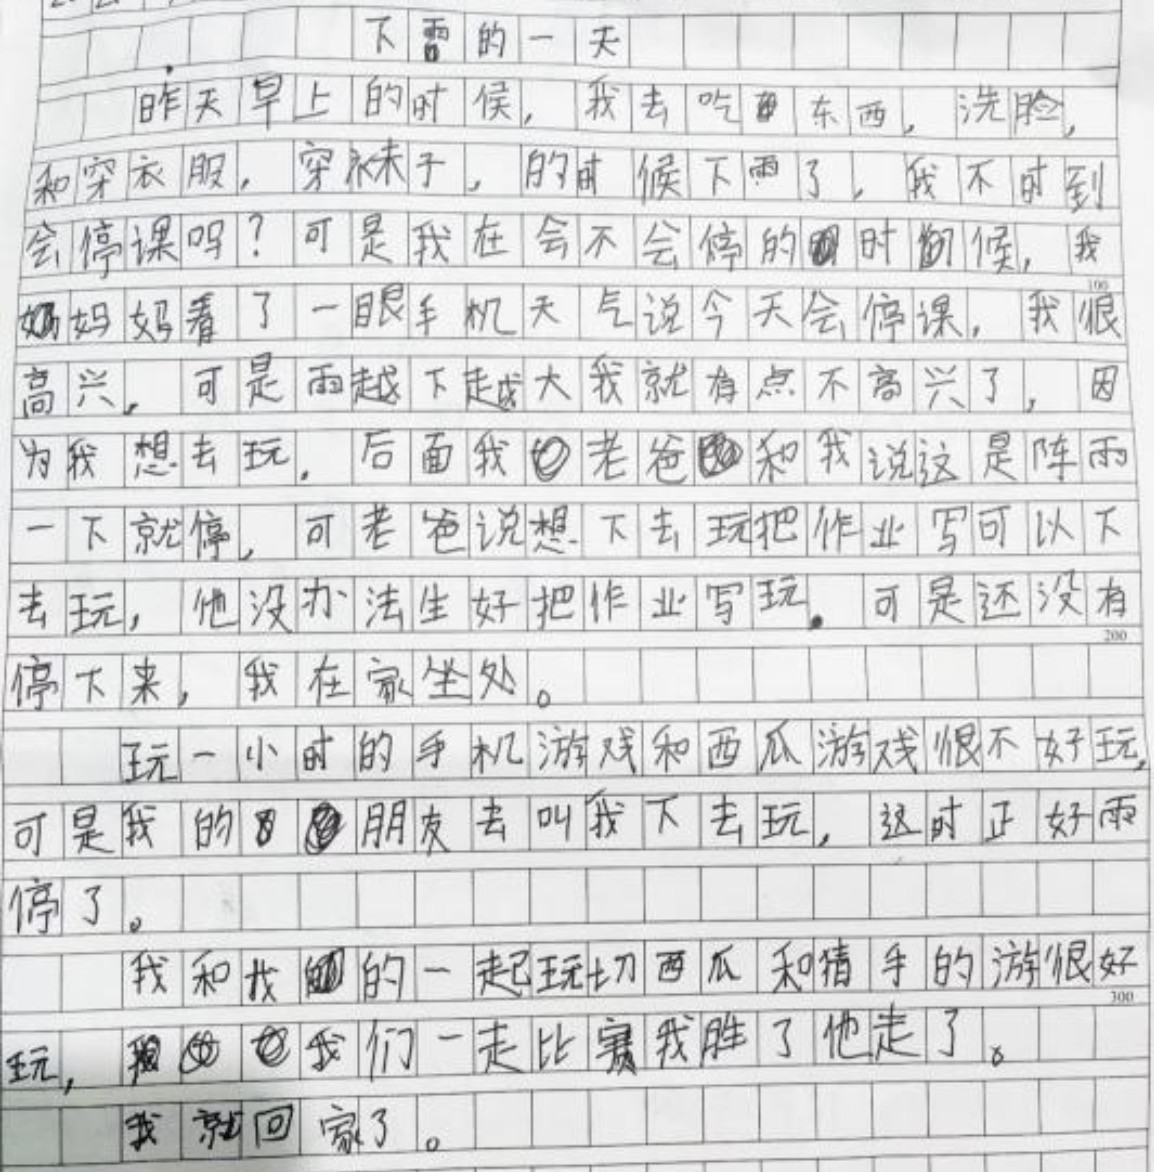 下雨的一天
昨天早上的时候,我去吃东西,洗脸,
和穿衣服,穿袜子,的时候下雨了,我不时到
会停课吗?可是我在会不会停的时候,我
妈妈看了一眼手机天气说今天会停课,我很
高兴,可是雨越下越大我就有点不高兴了,因
为我想去玩.后面我老爸和我说这是阵雨
一下就停,可老爸说想下去玩把作业写可以下
去玩,他没办法生好把作业写玩.可是还没有
停下来,我在家坐处。
玩一小时的手机游戏和西瓜游戏很不好玩,
可是我的朋友去叫我下去玩,这时正好雨
停了。
我和我的一起玩切西瓜和猜手的游很好
玩,我们一走比赛我胜了他走了。
我就回家了。
100
200
300